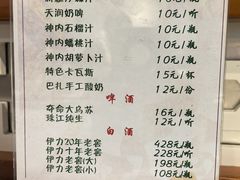 天润奶啤 10元/听
神内石榴汁 10元/瓶
神内蟠桃汁 10元/瓶
神内胡萝卜汁 10元/瓶
特色卡瓦斯 15元/杯
巴扎手工酸奶 12元/份
啤酒
夺命大乌苏 16元/瓶
珠江纯生 12元/听
白酒
伊力20年老窖 428元/瓶
伊力十年老窖 228元/瓶
伊力老窖(大) 198元/瓶
伊力老窖(小) 108元/瓶